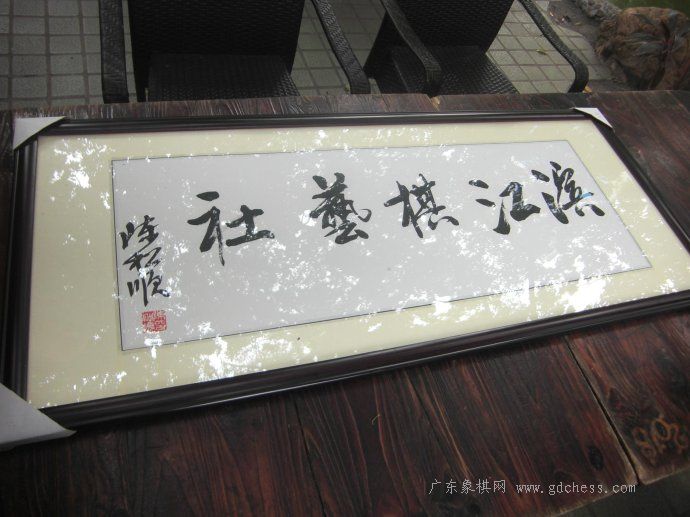 滨江棋藝社
陈松顺
广东象棋网 www.gdchess.com